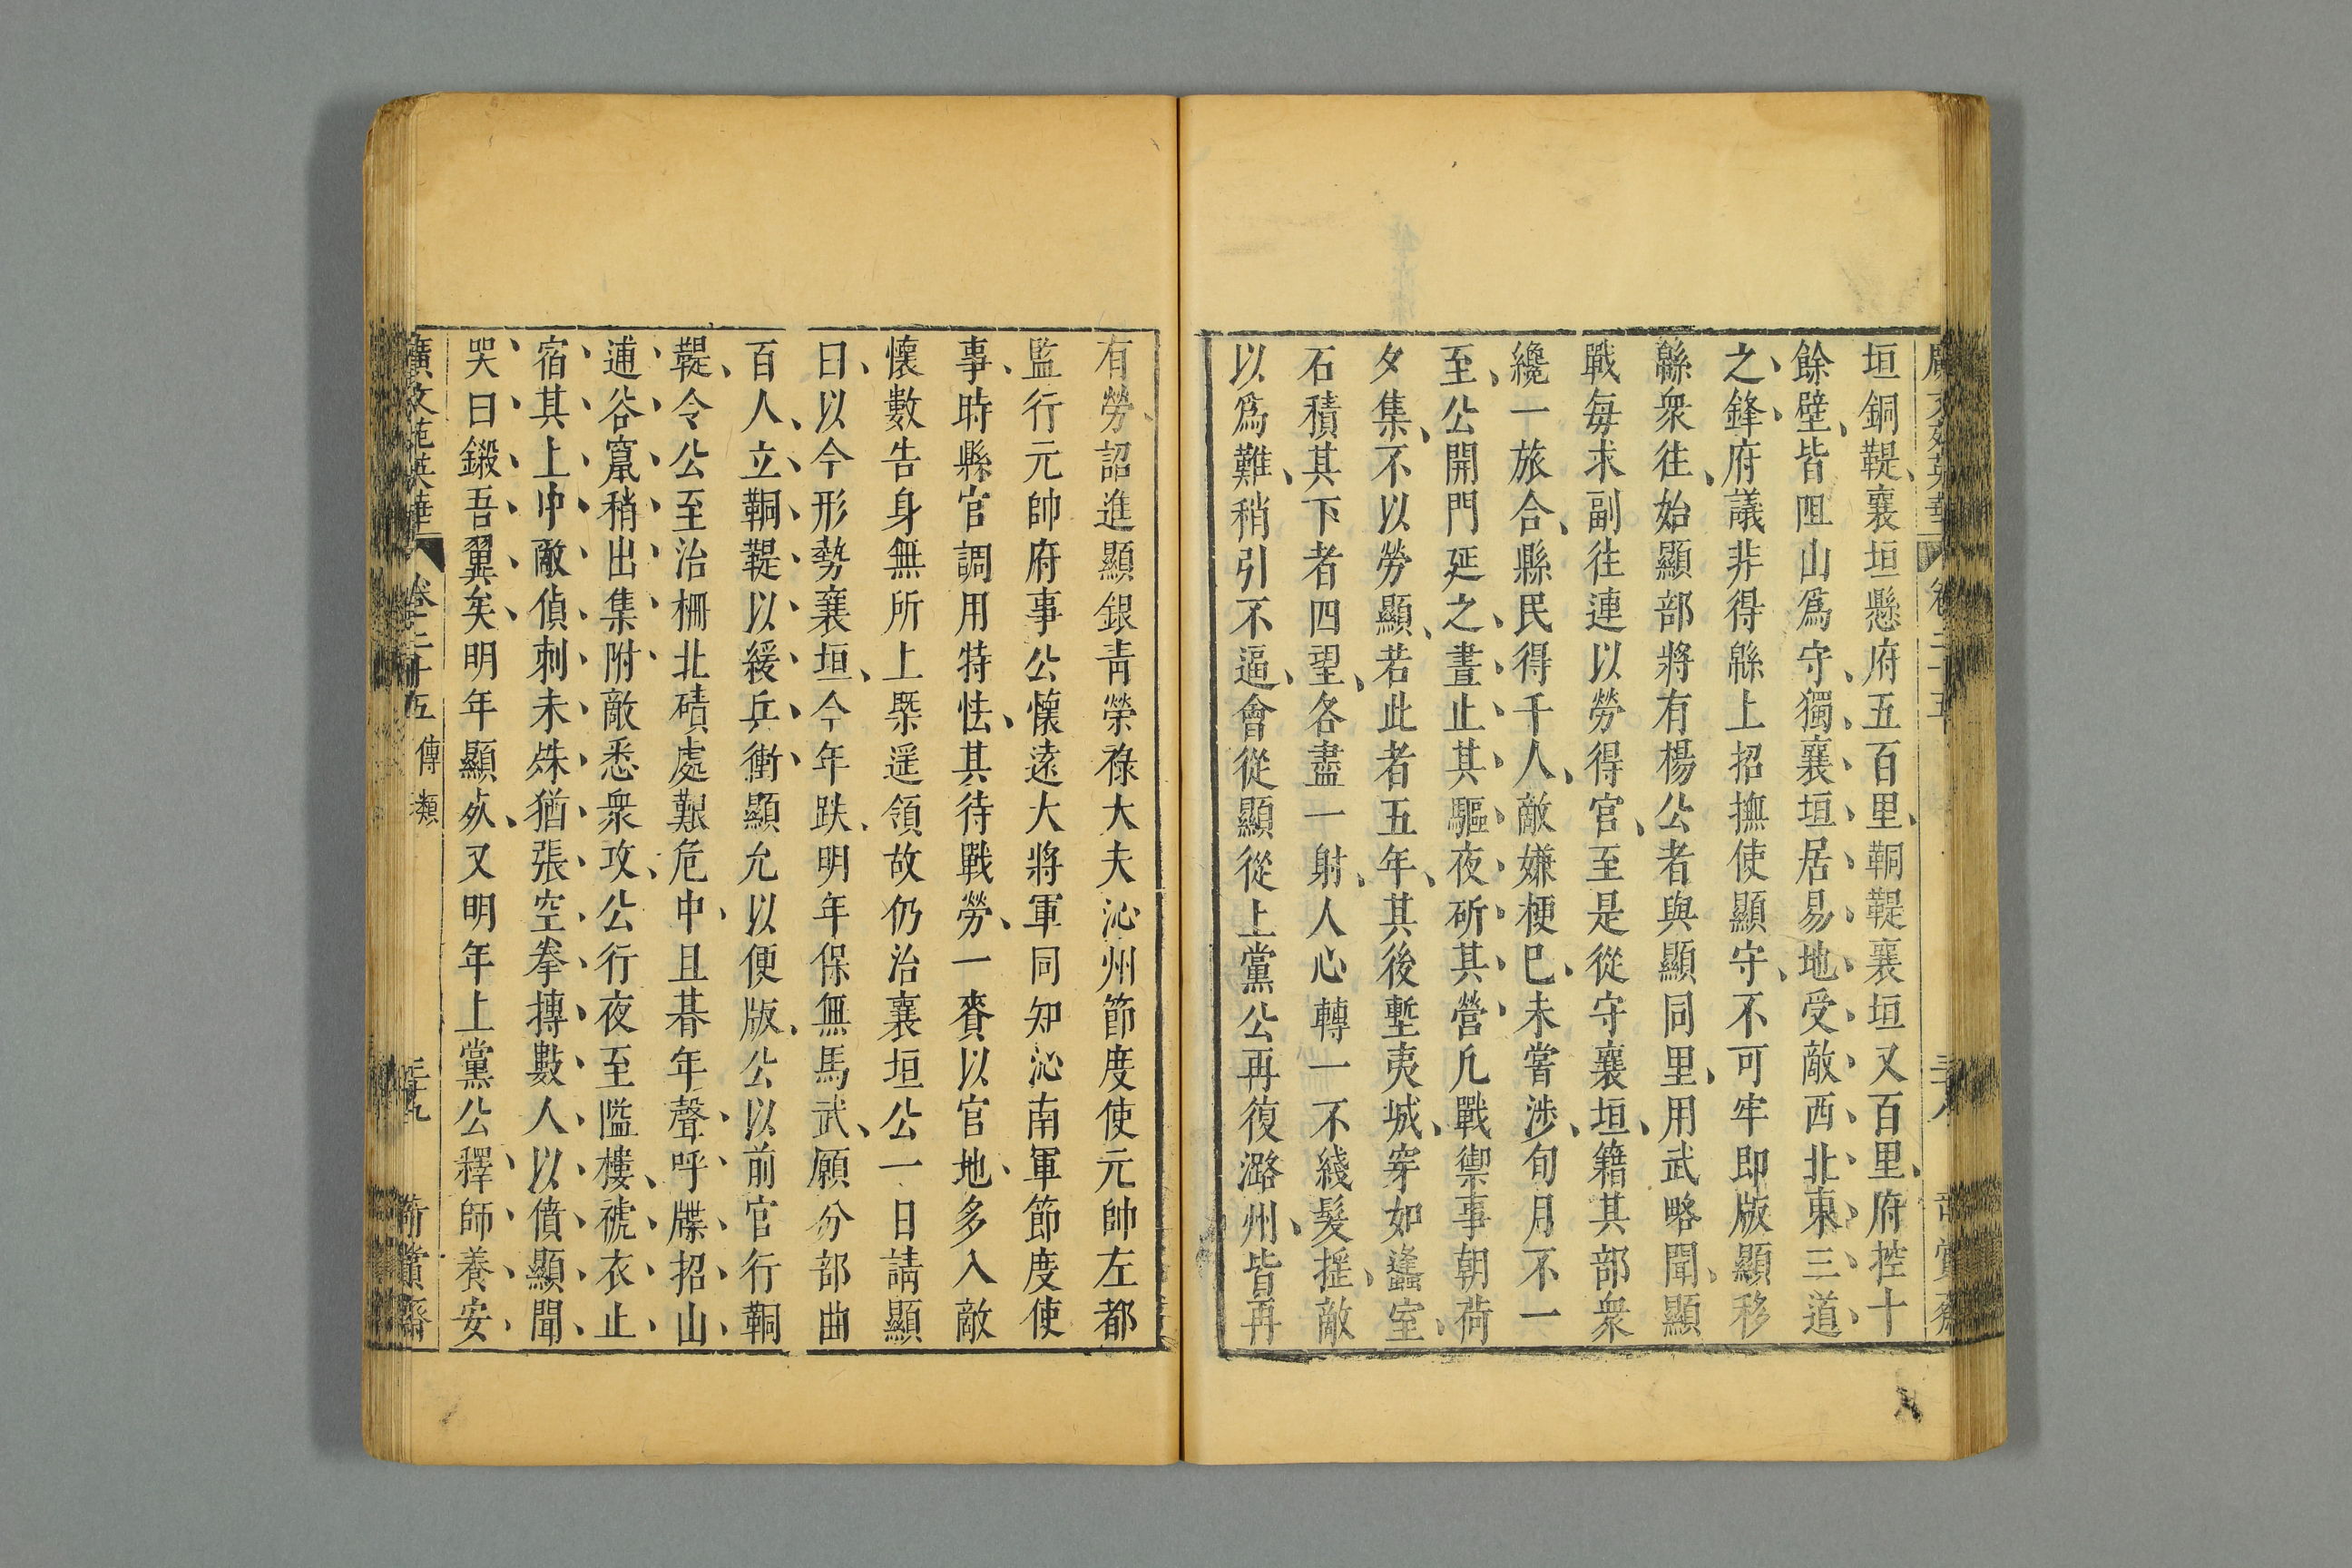 垣銅鞮襄垣懸府五百里銅鞮襄垣又百里府控十
餘壁皆阻山爲守獨襄垣居易地受敵西北東三道
之鋒府議非得緜上招撫使顯守不可牢即版顯移
緜衆往始顯部將有楊公者與顯同里用武略聞顯
戰每求副往連以勞得官至是從守襄垣籍其部衆
纔一旅合縣民得千人敵嫌梗巳未嘗涉旬月不一
至公開門延之晝止其驅夜斫其營凢戰禦事朝荷
夕集不以勞顯若此者五年其後塹夷城穿如蠭室
石積其下者四望各盡一射人心轉一不綫髮揺敵
以爲難稍引不逼會從顯從上黨公再復潞州皆再
有勞詔進顯銀靑榮祿大夫沁州節度使元帥左都
監行元帥府事公懷遠大將軍同知沁南軍節度使
事時縣官調用特怯其待戰勞一賚以官地多入敵
懷數告身無所上槩遥領故仍治襄垣公一日請顯
曰以今形勢襄垣今年跌明年保無馬武願分部曲
百人立鞩鞮以緩兵衝顯允以便版公以前官行鞩
鞮令公至治柵北磧處艱危中且朞年聲呼牒招山
逋谷竄稍出集附敵悉衆攻公行夜至隘樓褫衣止
宿其上中敵偵刺未殊猶張空拳摶數人以僨顯聞
哭曰鎩吾翼矣明年顯歿又明年上黨公釋師養安
廣文苑英華 卷二十五 傳類 三十九 奇賞齋